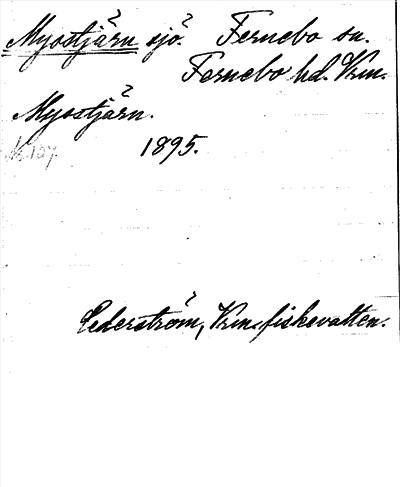 Myostjärn sjö. Fernebo sn.
Fernebo hd. Vrm.
Myostjärn.
1895.
Cederström, Vrm. fiskevatten.